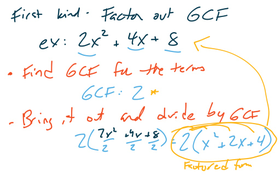 First kind - Factor out GCF
ex: 2x² + 4x + 8
• Find GCF for the terms
GCF: 2 *
• Bring it out and divide by GCF
2(2x²/2 + 4x/2 + 8/2) = 2(x² + 2x + 4)
Factored fm